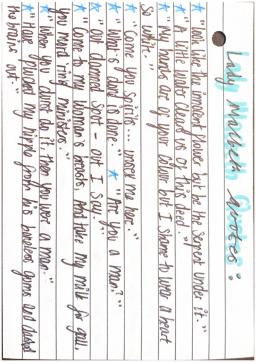 Lady Macbeth Quotes:
★ "Look like the innocent flower but be the serpent under it."
★ "A little water clears us of this deed."
★ "My hands are of your colour but I shame to wear a heart
so white."
★ "Come you spirits... unsex me here."
★ "What's done is done." ★ "Are you a man?"
★ "Out damned spot - out I say."
★ "Come to my woman's breasts, And take my milk for gall,
you murd'ring ministers."
★ "When you durst do it, then you were a man."
★ "Have plucked my nipple from his boneless gums and dashed
the brains out."